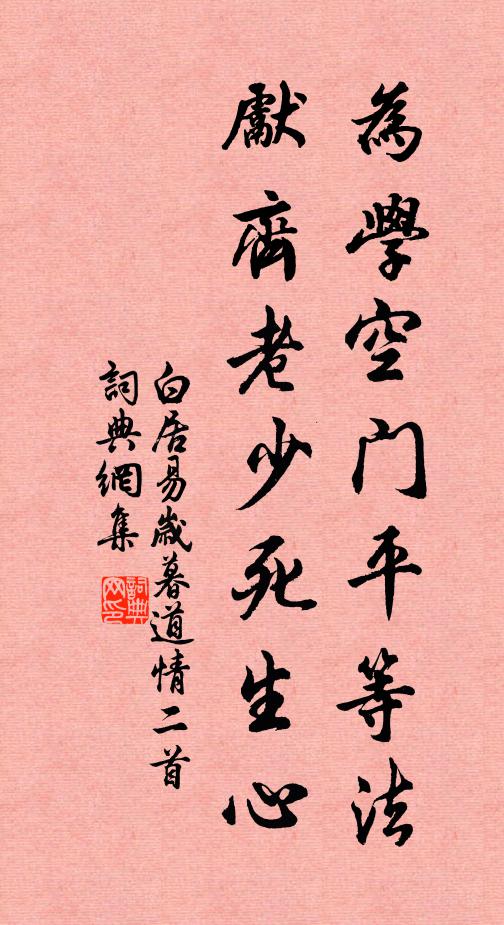 為學空門平等法
獻齊老少死生心
白居易歲暮道情二首
詞典網集
詞典
网印